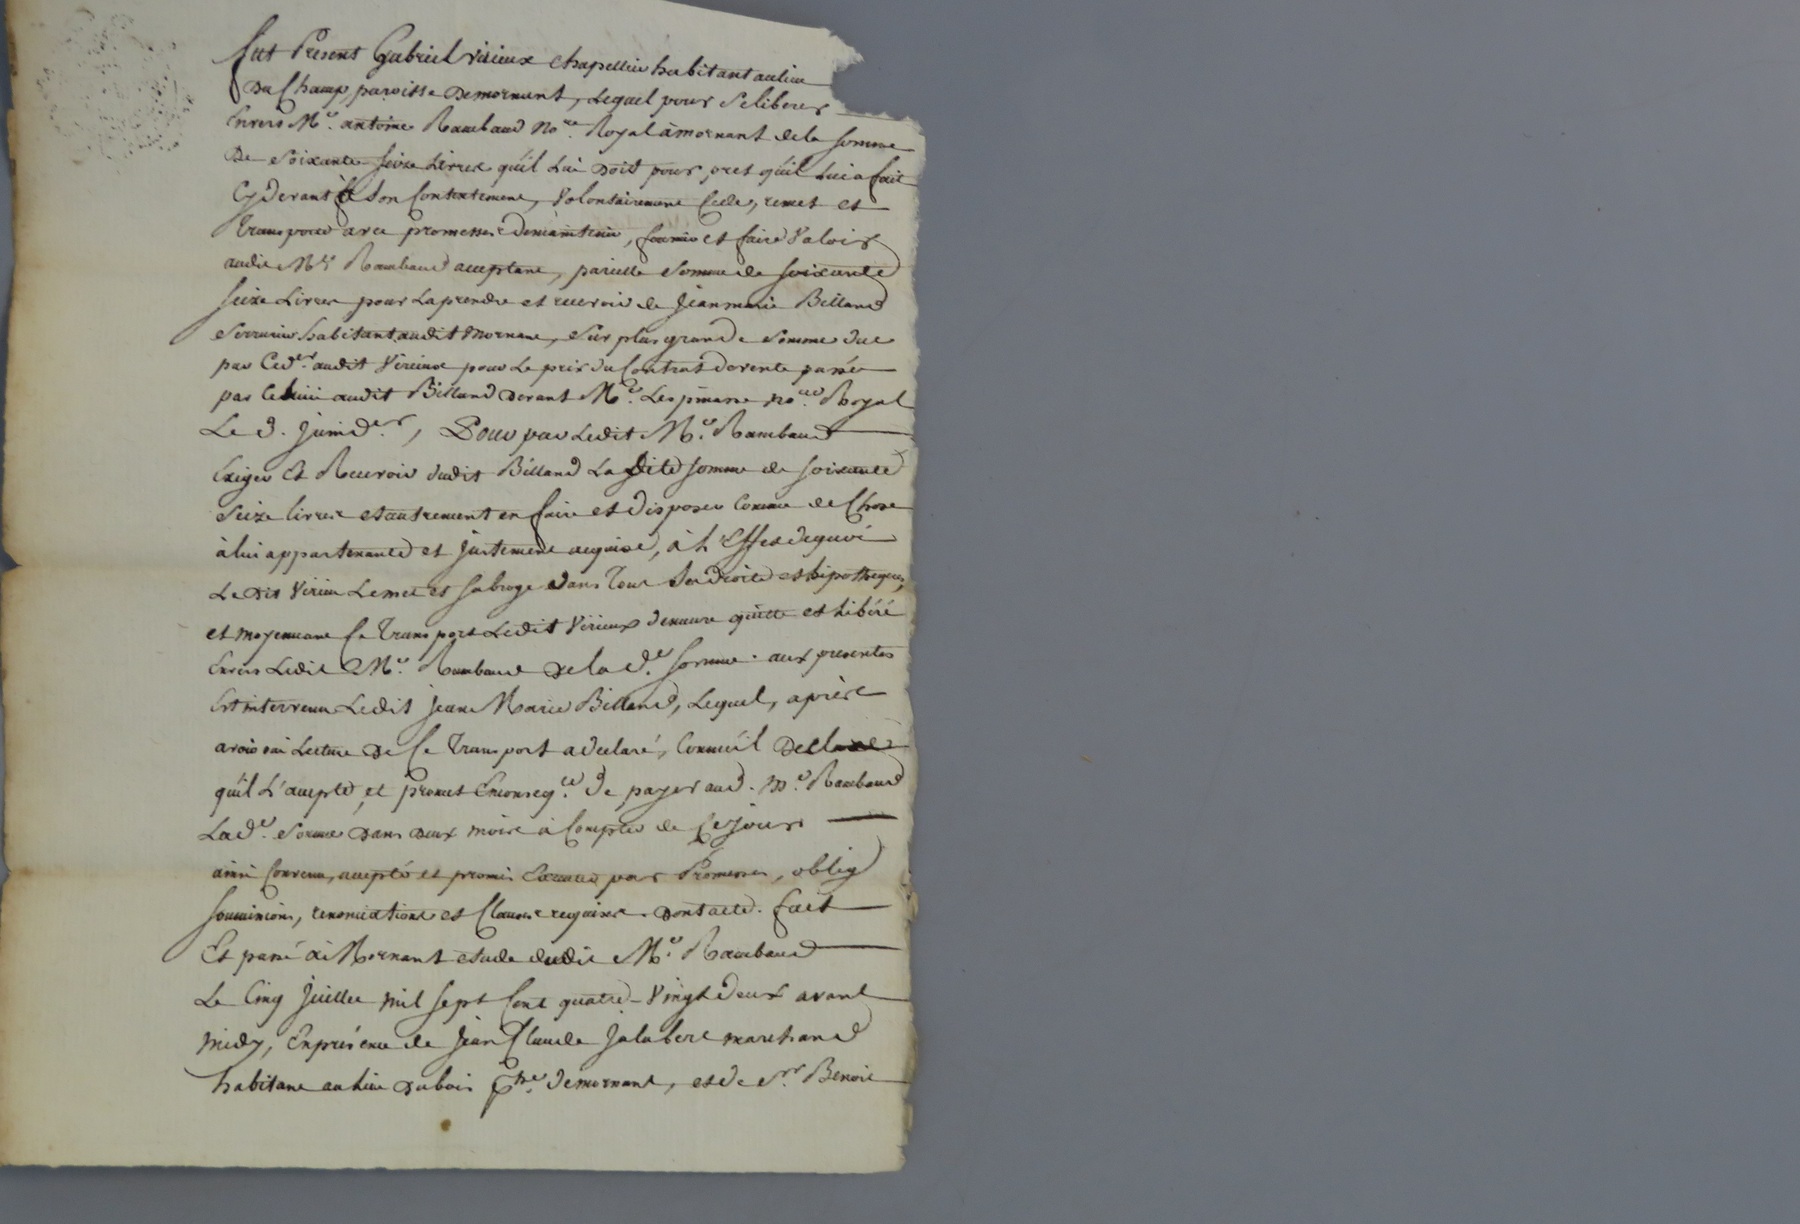 fut Present Gabriel Virieux chapellier habitant au lieu
Du Champ, paroisse de mornant, Lequel pour se liberer
Envers Me. antoine Rambaud No.re Royal à mornant de la somme
De soixante-seize Livres qu'il Lui doit pour pret qu'il Lui a fait
Cy devant à son Contentement, Volontairement Cede, remet et
Transporte avec promesse de maintenir, fournir et faire Valoir
audit Me Rambaud acceptant, pareille somme de soixante
seize Livres pour La prendre et recevoir de Jean marie Billand
serrurier habitant audit Mornant, sur plus grande somme due
par Ced.er audit Virieux pour Le prix du Contrat de vente passée
par Celui audit Billand devant Me. Lespinasse no.re Royal
Le 3. juin d.er, Pour par Ledit Me. Rambaud
Exiger Et Recevoir dudit Billand La dite somme de soixante
seize livres et autrement en faire et disposer Comme de Chose
à lui appartenante et justement acquise, à L'Effet de quoi
Le dit Virieux Le met et subroge dans Tous ses droits et hipotheques,
et moyennant Ce Transport Ledit Virieux demeure quitte et Libéré
Envers Ledit Me. Rambaud de la d.e somme. aux presentes
Est intervenu Ledit jean Marie Billand, Lequel, après
avoir oui Lecture de Ce Transport a declaré, Comme il declare
qu'il L'accepte, et promet En conseq.ce de payer aud. Me Rambaud
La d.e somme dans deux mois à Compter de Ce jour
ainsi Convenu, accepté et promis Executer par Promesses, oblig
soumissions, renonciations et Clauses requises. dont acte. fait
Et passé à Mornant etude dudit Me. Rambaud
Le Cinq Juillet mil sept Cent quatre-Vingt deux avant
midy, En présence de Jean Claude Jalabert marchand
habitant au Lieu du bois p.sse de mornant, et de s.r Benoit